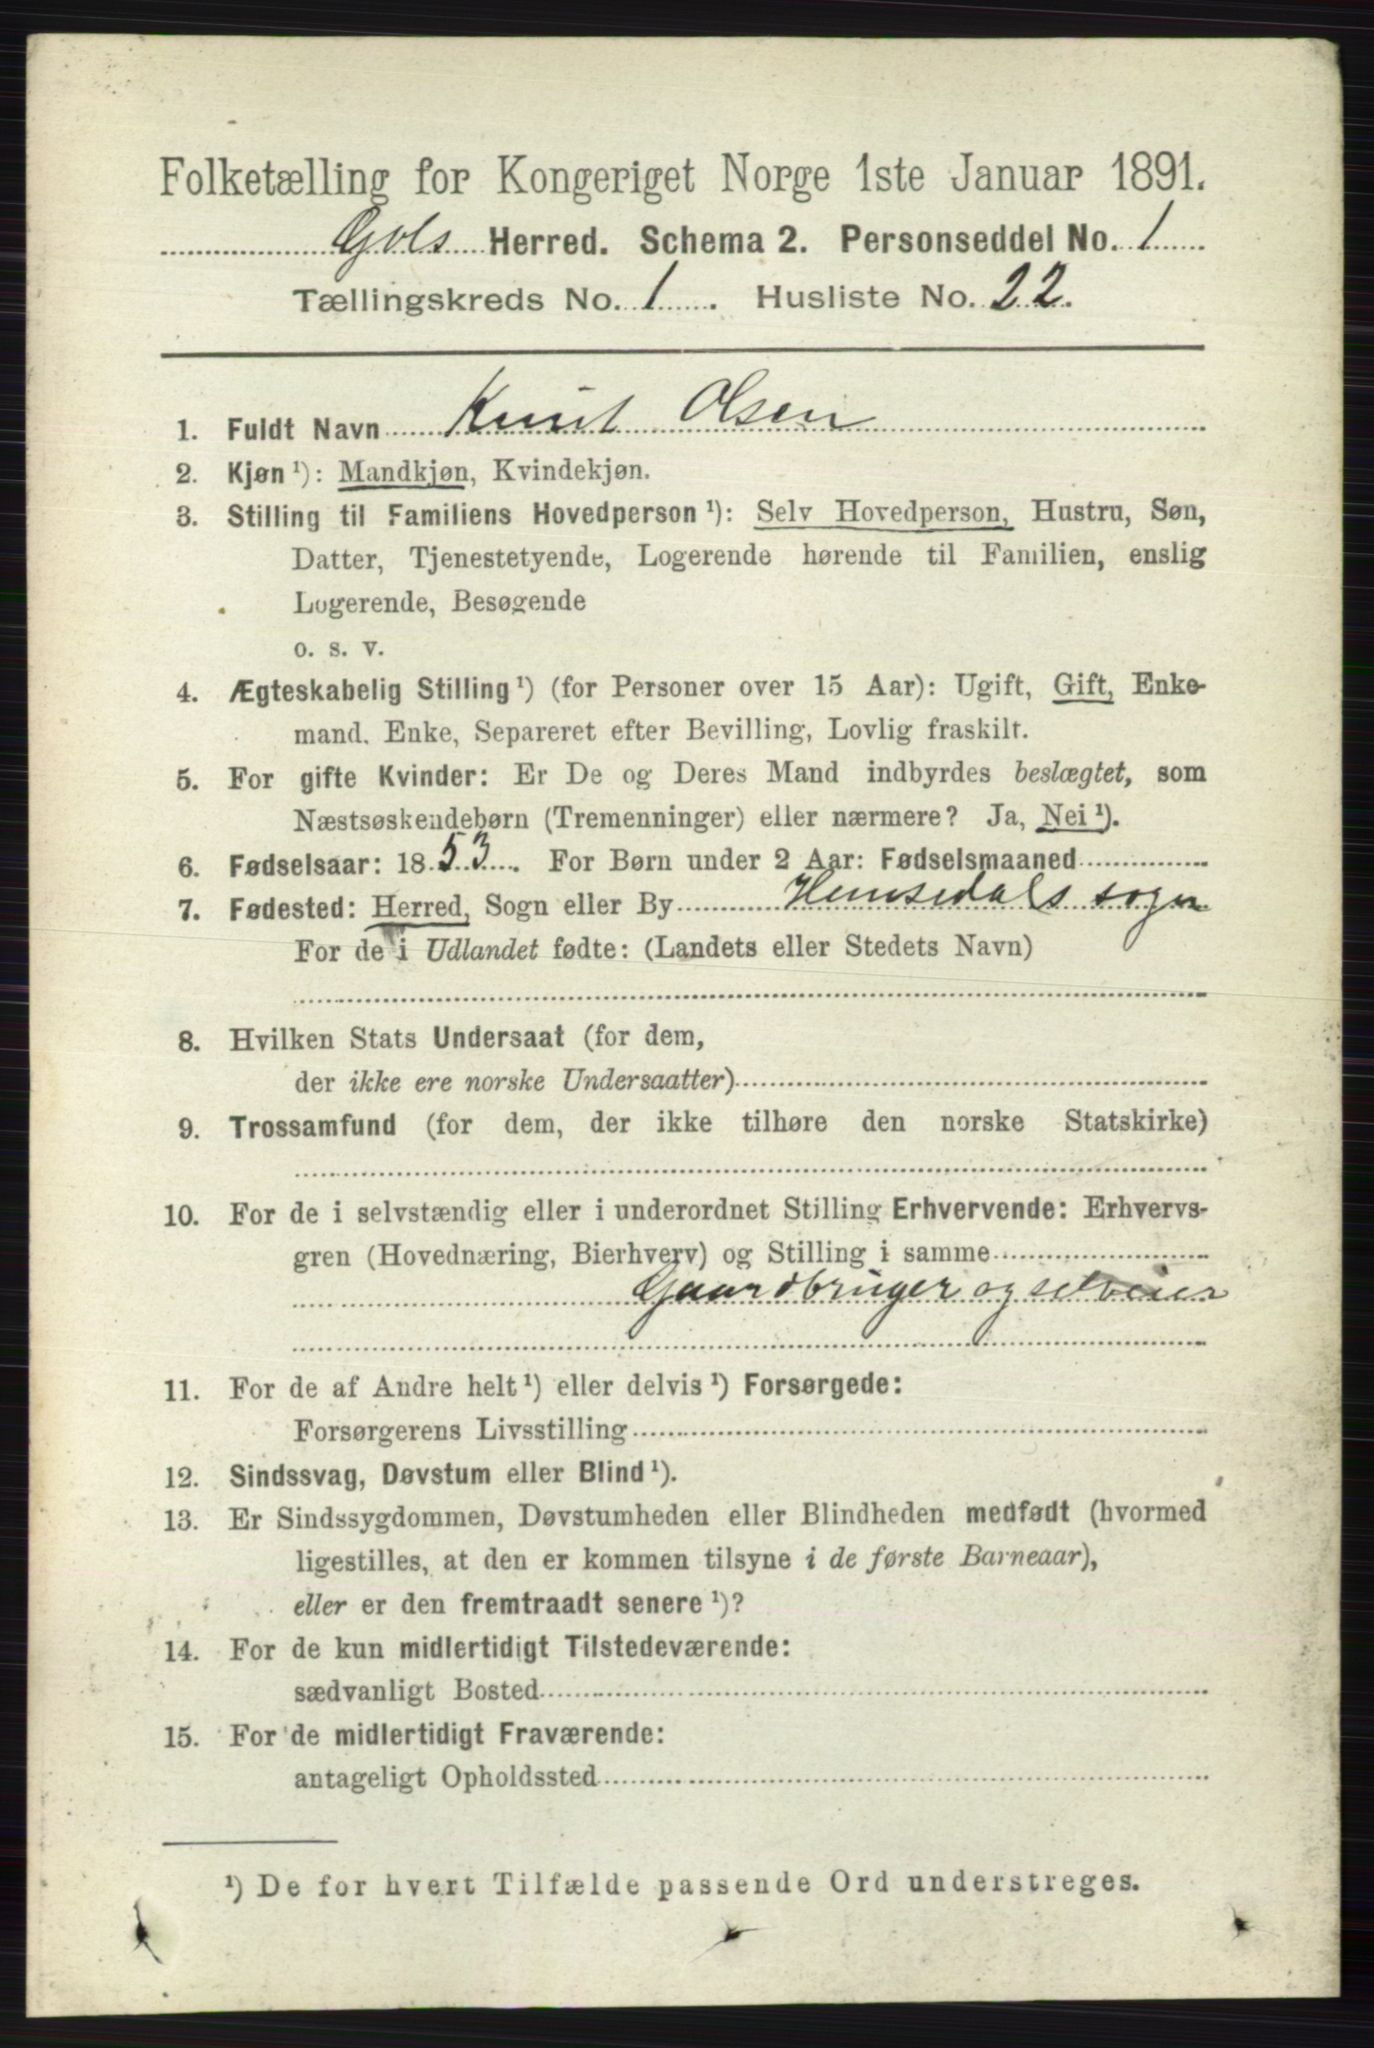 Folketælling for Kongeriget Norge 1ste Januar 1891.
Gols Herred. Schema 2. Personseddel No. 1
Tællingskreds No. 1. Husliste No. 22.
1. Fuldt Navn Knut Olsen
2. Kjøn ¹): Mandkjøn, Kvindekjøn.
3. Stilling til Familiens Hovedperson ¹): Selv Hovedperson, Hustru, Søn,
Datter, Tjenestetyende, Logerende hørende til Familien, enslig
Logerende, Besøgende
o. s. v.
4. Ægteskabelig Stilling ¹) (for Personer over 15 Aar): Ugift, Gift, Enke-
mand, Enke, Separeret efter Bevilling, Lovlig fraskilt.
5. For gifte Kvinder: Er De og Deres Mand indbyrdes beslægtet, som
Næstsøskendebørn (Tremenninger) eller nærmere? Ja, Nei ¹).
6. Fødselsaar: 1853. For Børn under 2 Aar: Fødselsmaaned
7. Fødested: Herred, Sogn eller By Hemsedals sogn
For de i Udlandet fødte: (Landets eller Stedets Navn)
8. Hvilken Stats Undersaat (for dem,
der ikke ere norske Undersaatter)
9. Trossamfund (for dem, der ikke tilhøre den norske Statskirke)
10. For de i selvstændig eller i underordnet Stilling Erhvervende: Erhvervs-
gren (Hovednæring, Bierhverv) og Stilling i samme
Gaardbruger og selveier
11. For de af Andre helt ¹) eller delvis ¹) Forsørgede:
Forsørgerens Livsstilling
12. Sindssvag, Døvstum eller Blind ¹).
13. Er Sindssygdommen, Døvstumheden eller Blindheden medfødt (hvormed
ligestilles, at den er kommen tilsyne i de første Barneaar),
eller er den fremtraadt senere ¹)?
14. For de kun midlertidigt Tilstedeværende:
sædvanligt Bosted
15. For de midlertidigt Fraværende:
antageligt Opholdssted
¹) De for hvert Tilfælde passende Ord understreges.